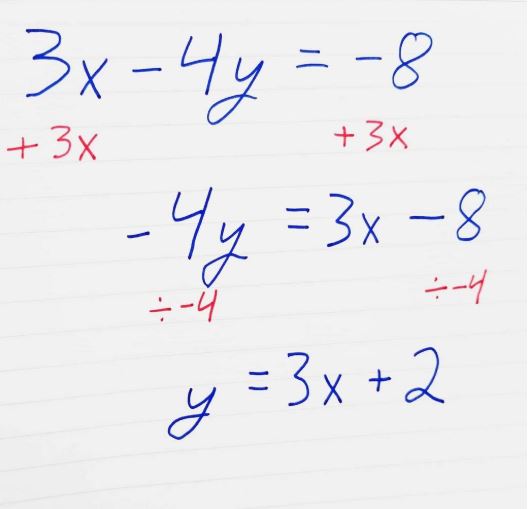 3x - 4y = -8
+ 3x + 3x
- 4y = 3x - 8
÷ -4 ÷ -4
y = 3x + 2